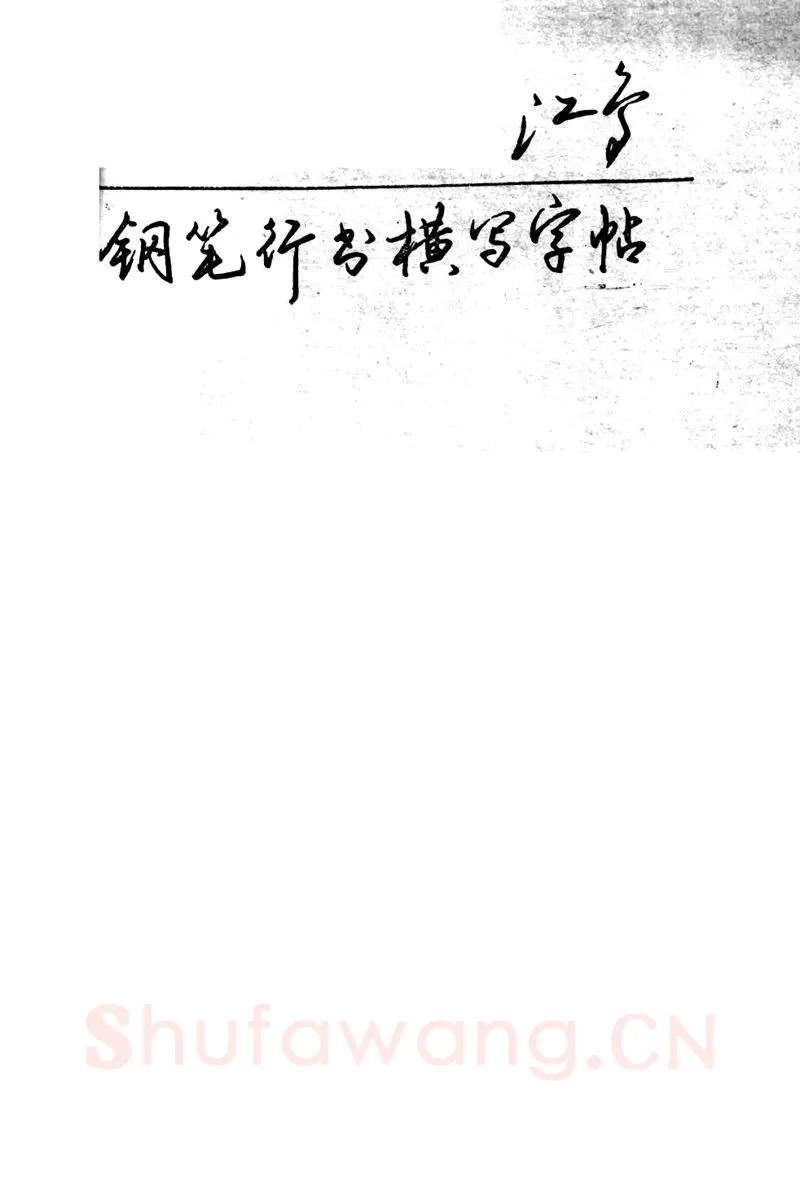 江鸟
钢笔行书横写字帖
Shufawang.CN